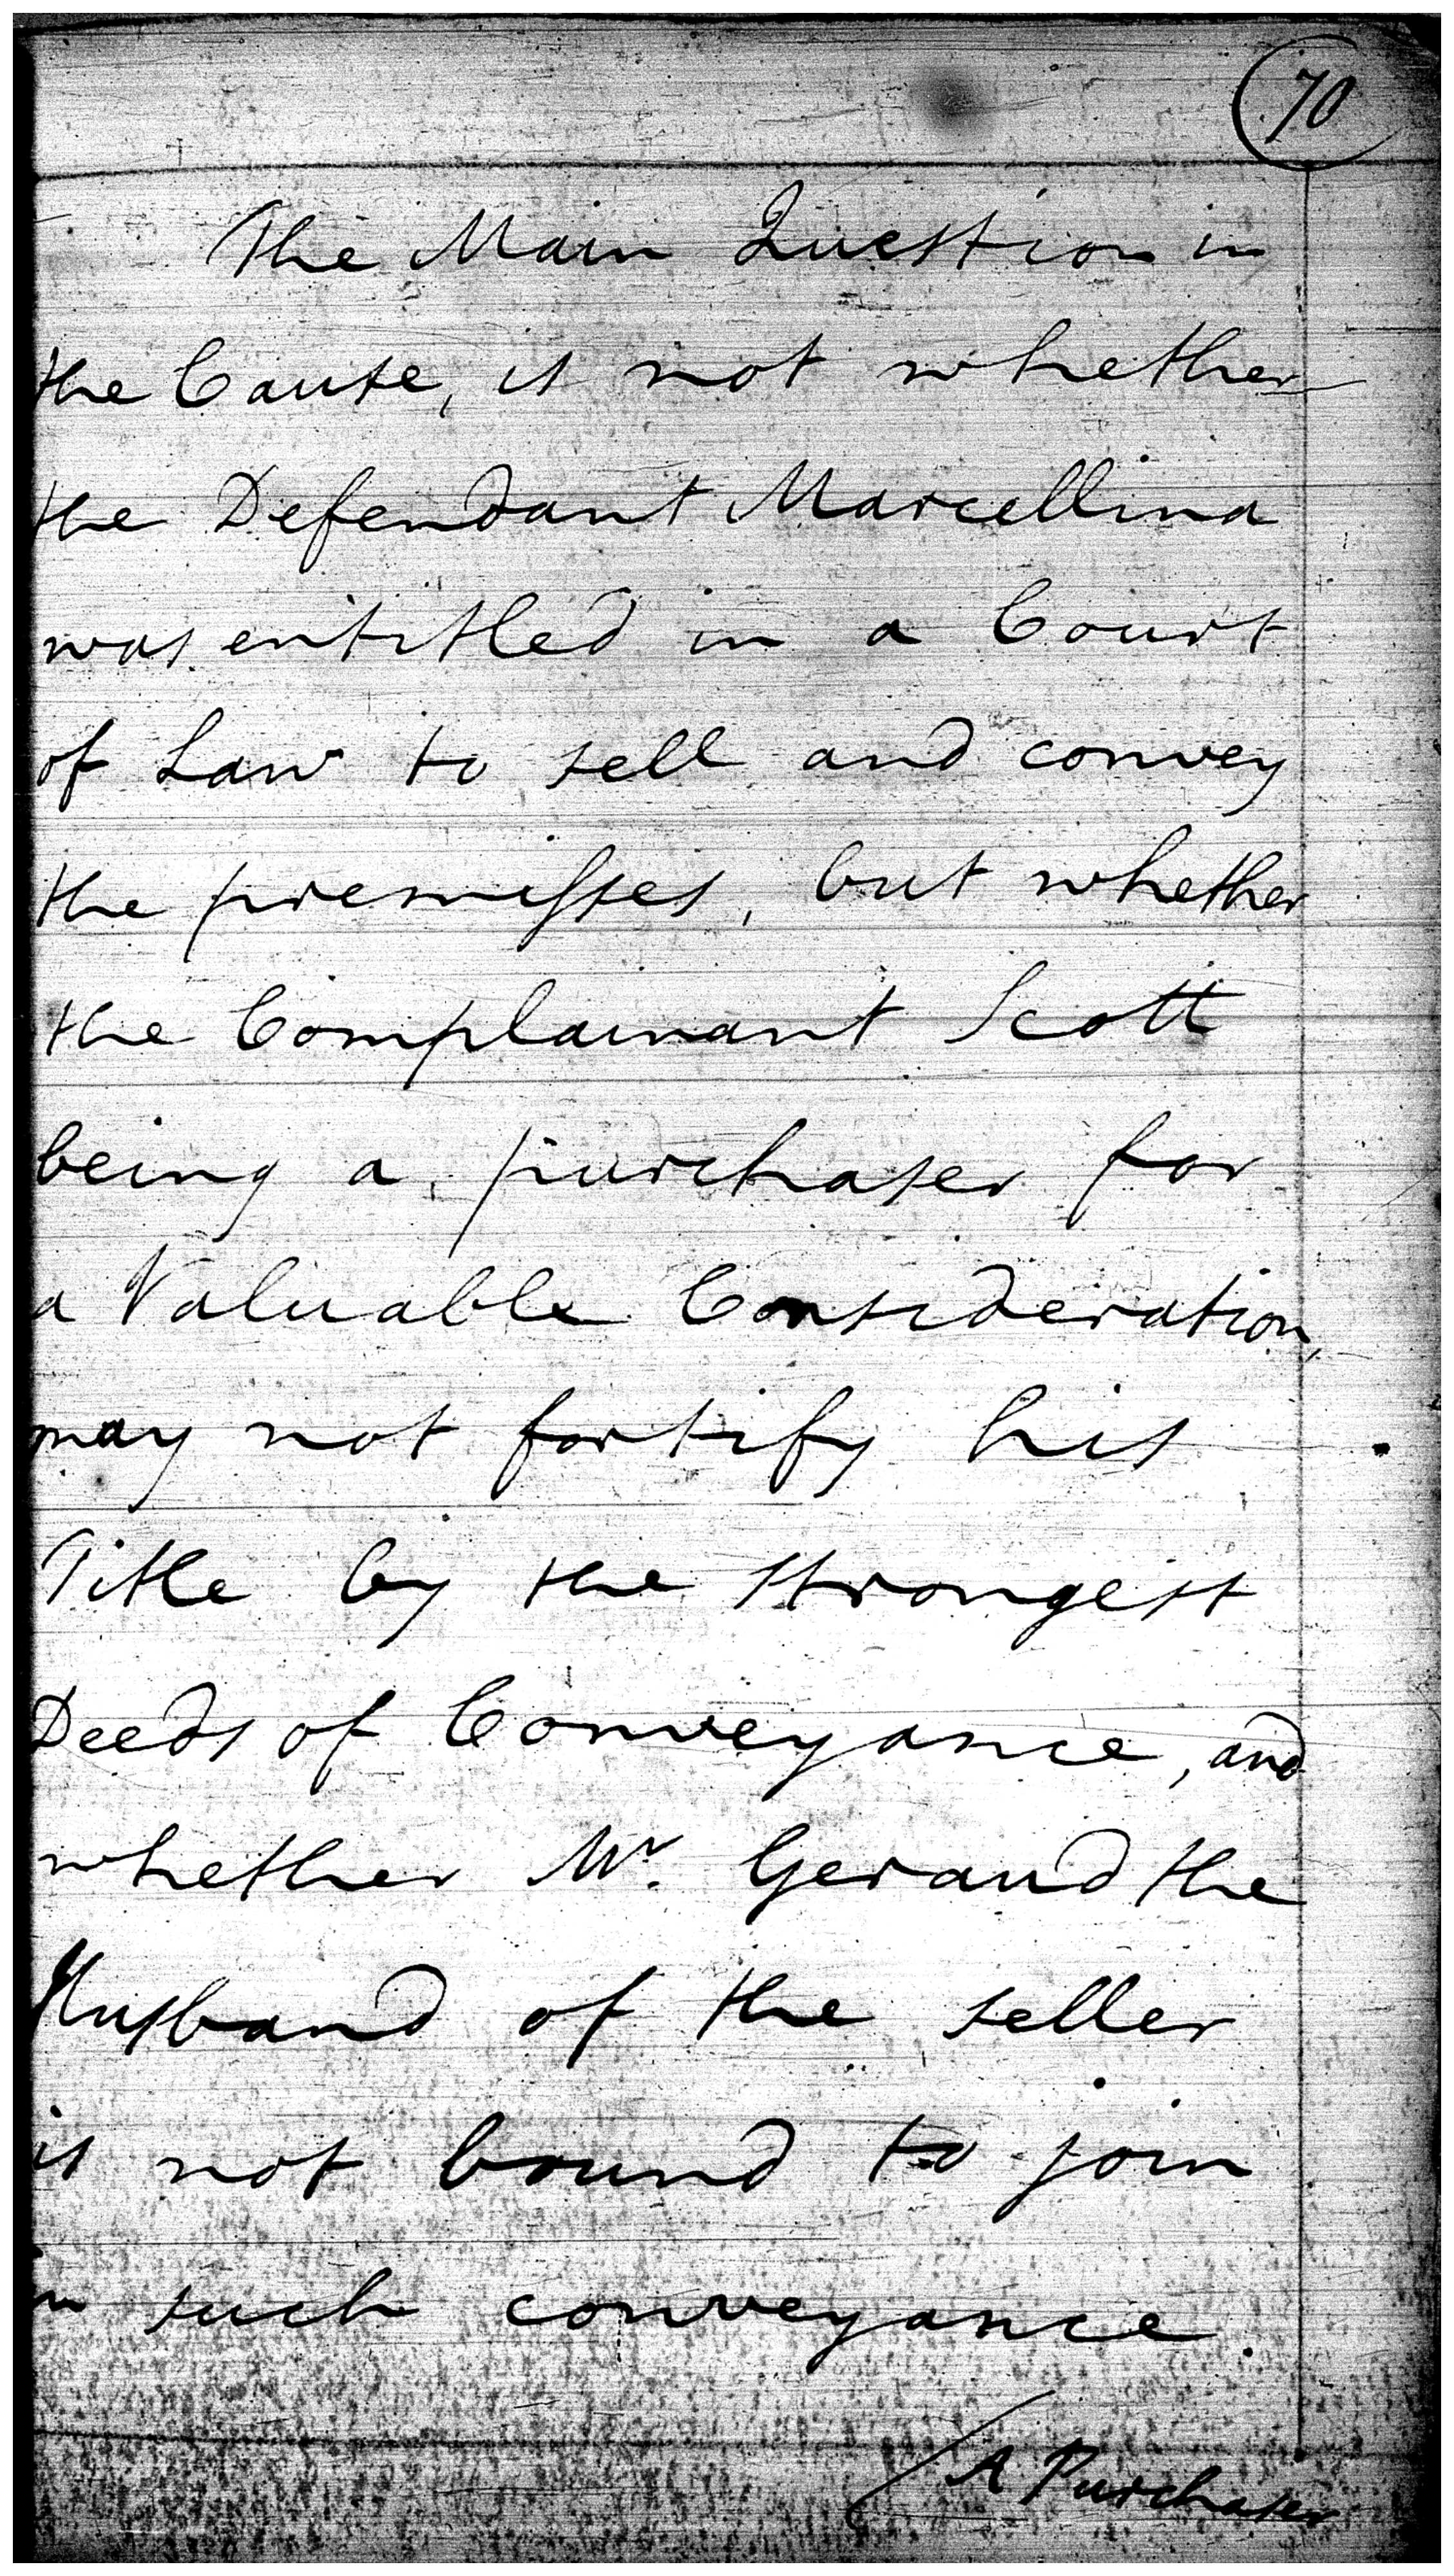 70
The Main Question in
the Cause, is not whether
the Defendant Marcellina
was entitled in a Court
of Law to sell and convey
the premisses, but whether
the Complainant Scott
being a purchaser for
a Valuable Consideration,
may not fortify his
Title by the strongest
Deeds of Conveyance, and
whether Mr. Geraud the
Husband of the seller
is not bound to join
in such conveyance.
/A Purchaser